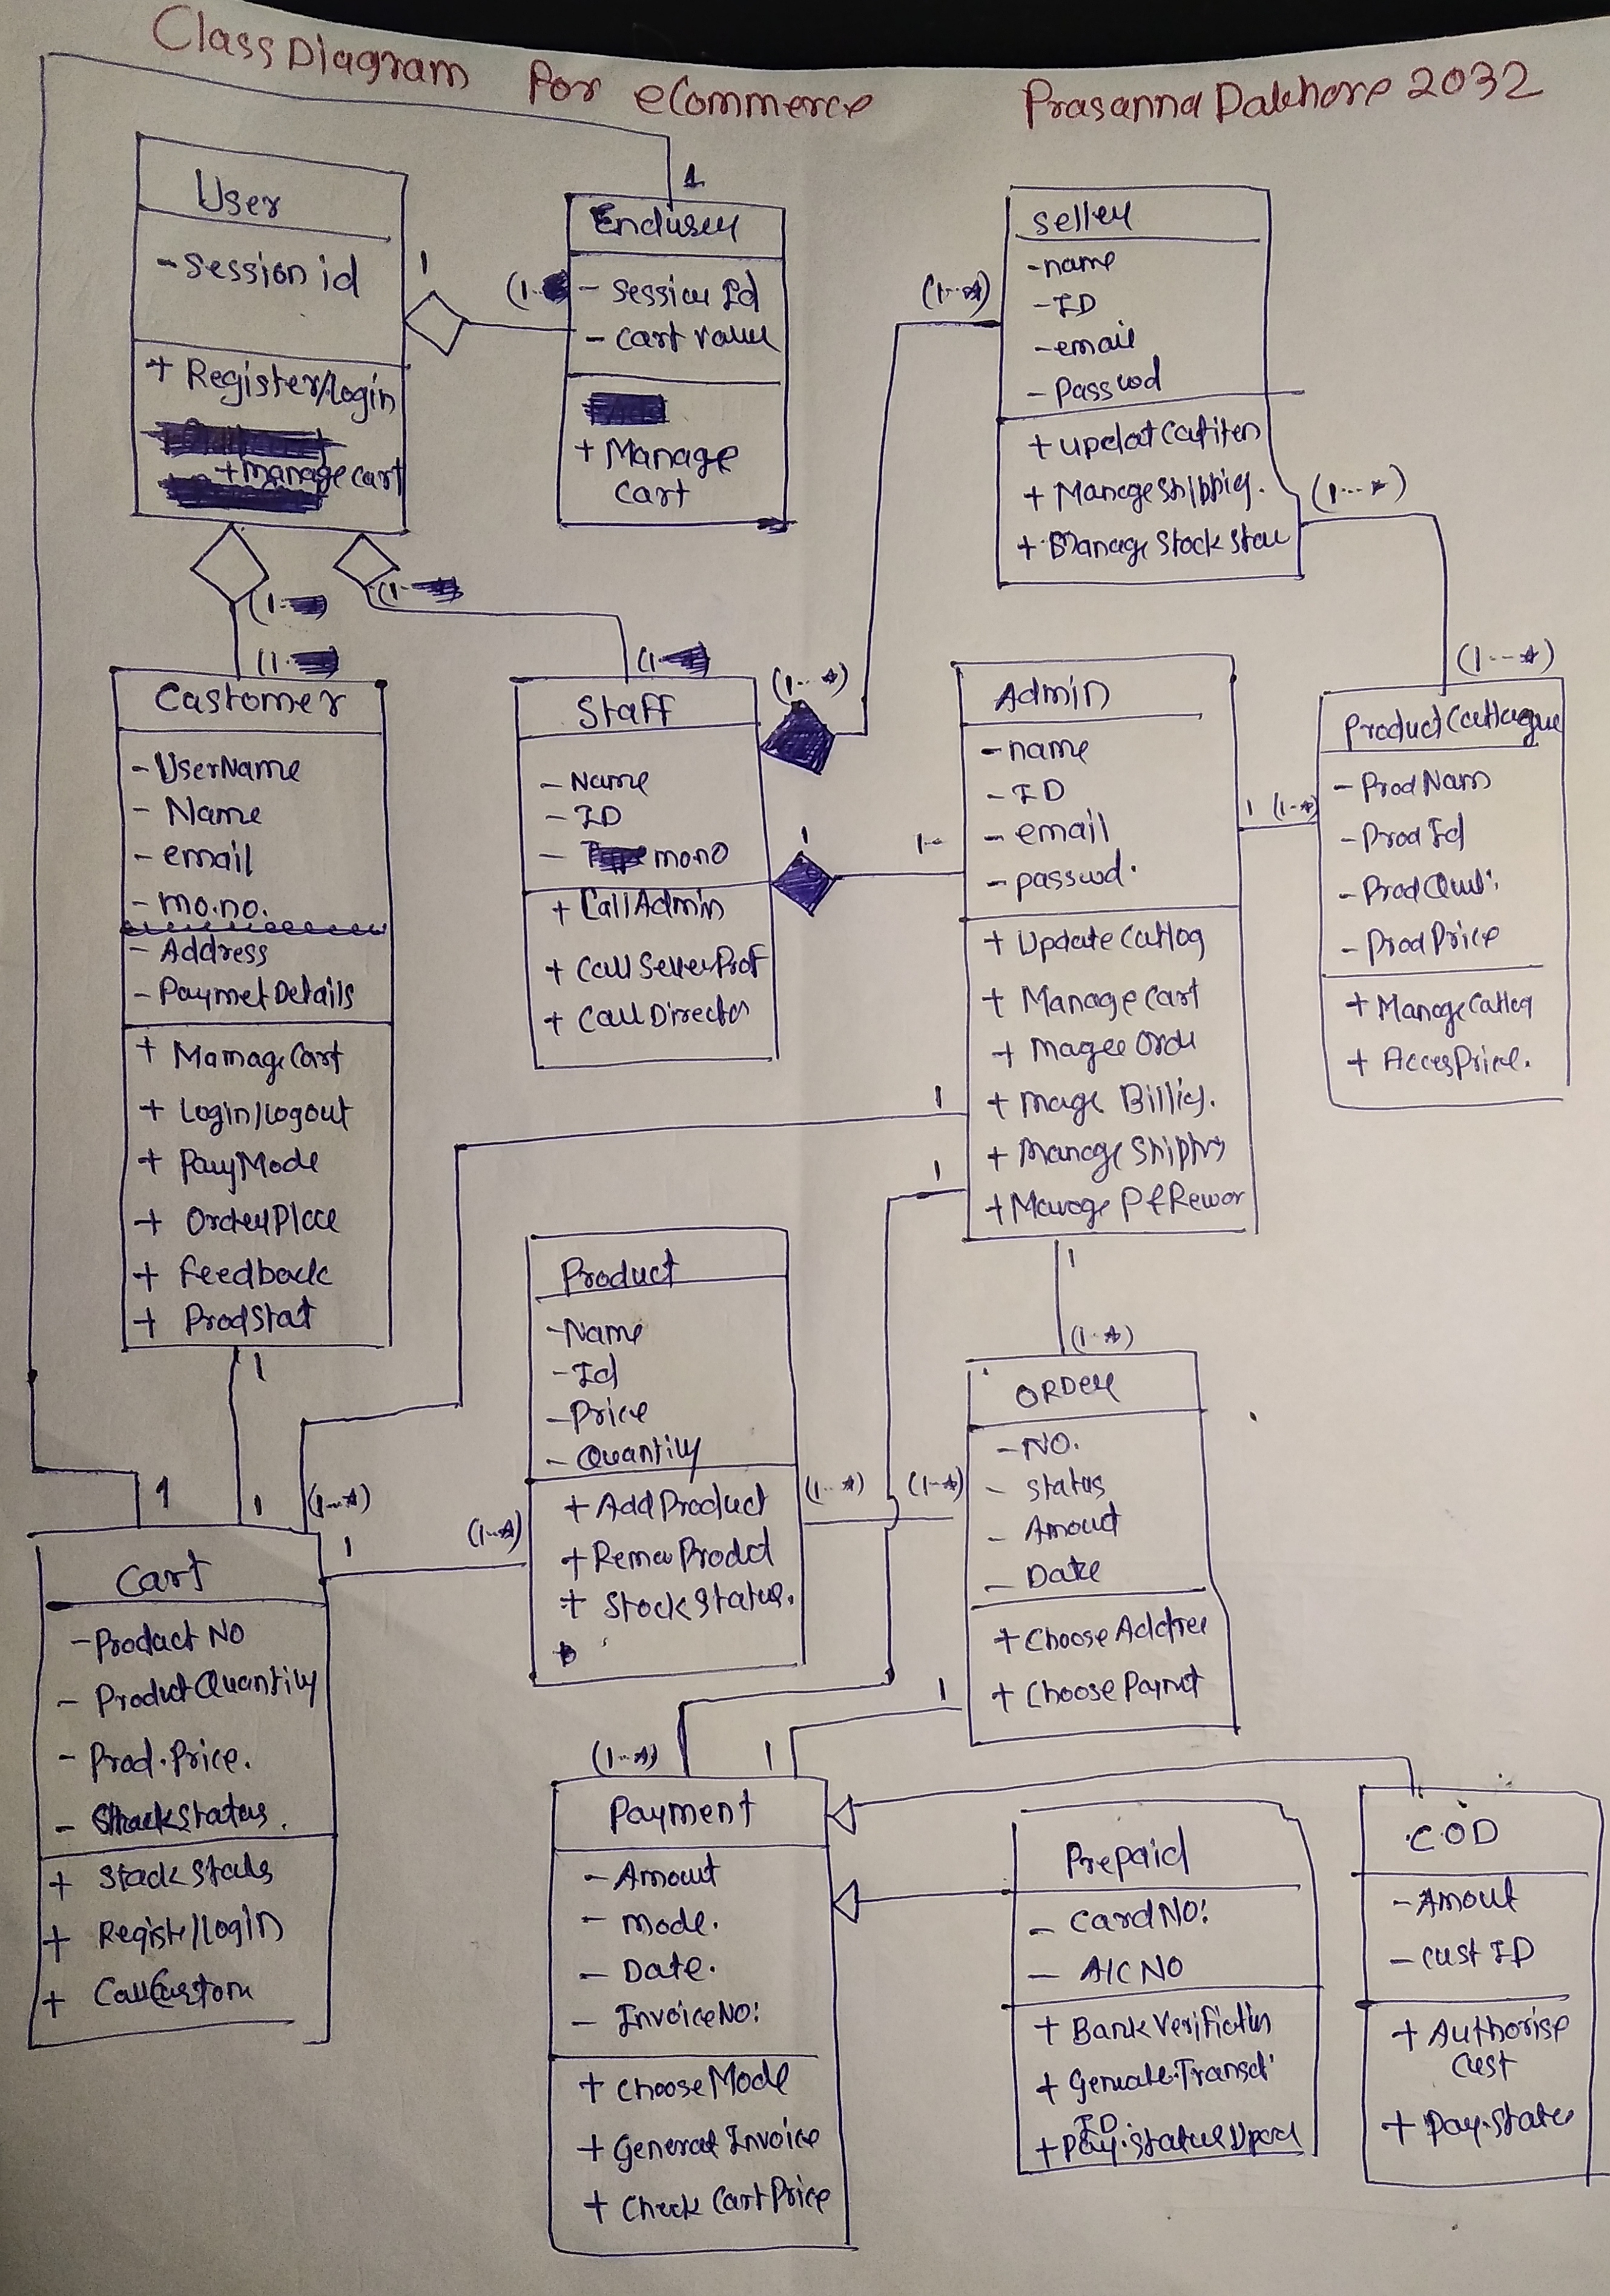 Class Diagram For eCommerce Prasanna Dakhore 2032
User
- Session id
+ Register/login
+ manage cart
1
Enduser
- Session Id
- Cart value
+ Manage
Cart
1
(1-
Seller
- name
- ID
- email
- Passwod
+ Updat Catiten
+ Manage Shipping.
+ Manage Stock Stau
(1--*)
(1---*)
(1-
(1-
(1-
(1-
Castomer
- UserName
- Name
- email
- mo.no.
- Address
- Paymet Details
+ Mamage Cart
+ Login/logout
+ PayMode
+ Order Place
+ Feedback
+ ProdStat
1
Staff
- Name
- ID
- mono
+ Call Admin
+ Call Seller Prof
+ Call Director
(1--*)
1
1-
Admin
- name
- ID
- email
- passwod.
+ Update Catlog
+ Manage Cart
+ Magee Orde
+ Mage Billig.
+ Manage Shippng
+ Manage Pf Rewor
1
1
1
1 (1-*)
(1---*)
Product Catlague
- Prod Nam
- Prod Id
- Prod Quti.
- Prod Price
+ Manage Catlog
+ Acces Price.
Product
- Name
- Id
- Price
- Quantity
+ Add Product
+ Remov Prodct
+ Stock Status.
(1--*)
(1-*)
(1-*)
ORDer
- NO.
- Status
- Amout
- Date
+ Choose Addree
+ Choose Paymt
(1-*)
1
1
1
(1--*)
1
Cart
- Product No
- Product Quantity
- Prod. Price.
- Stack Status.
+ Stack Status
+ Registe/Login
+ Call Custom
(1--*)
1
Payment
- Amout
- Mode.
- Date.
- Invoice NO:
+ Choose Mode
+ General Invoice
+ Check Cart Price
Prepaid
- Card NO:
- A/C NO
+ Bank Verifictin
+ Genrate. Transct
ID
+ Pay. Status Upda
C.O.D
- Amout
- Cust ID
+ Authorise
Cust
+ Pay. State